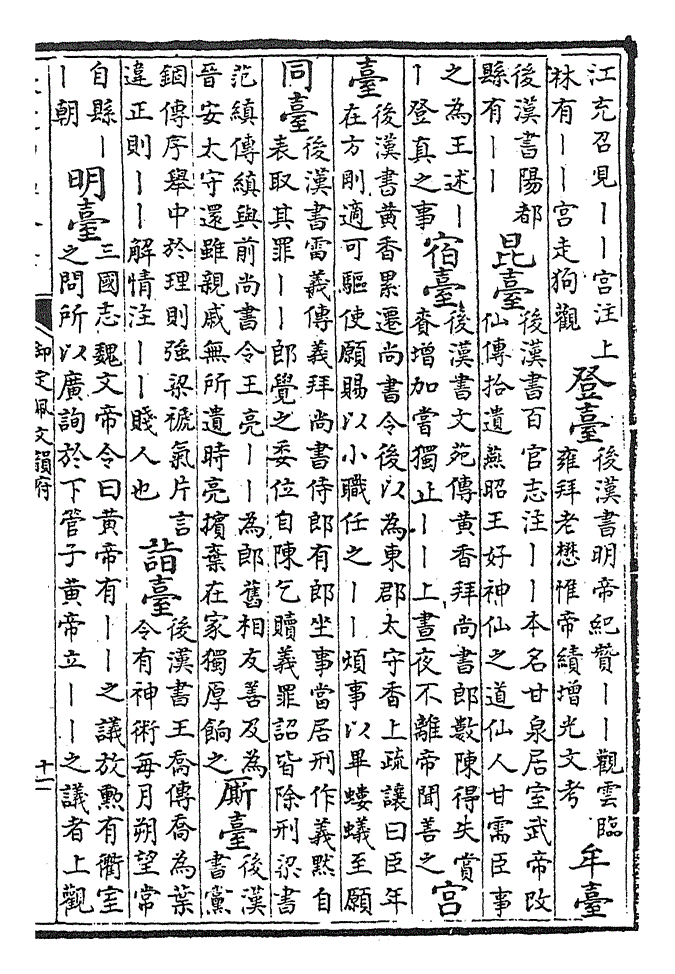 江充召見——宮注上
林有——宮走狗觀
登臺
後漢書明帝紀贊——觀雲臨
雍拜老懋惟帝績增光文考
牟臺
後漢書陽都
縣有——
昆臺
後漢書百官志注——本名甘泉居室武帝改
仙傳拾遺燕昭王好神仙之道仙人甘需臣事
之為王述—
—登真之事
宿臺
後漢書文苑傳黃香拜尚書郎數陳得失賞
賚增加嘗獨止——上晝夜不離帝聞善之
宮
臺
後漢書黃香累遷尚書令後以為東郡太守香上疏讓曰臣年
在方剛適可驅使願賜以小職任之——煩事以畢螻蟻至願
同臺
後漢書雷義傳義拜尚書侍郎有郎坐事當居刑作義默自
表取其罪——郎覺之委位自陳乞贖義罪詔皆除刑梁書
范縝傳縝與前尚書令王亮——為郎舊相友善及為
晉安太守還雖親戚無所遺時亮擯棄在家獨厚餉之
廝臺
後漢
書黨
錮傳序舉中於理則強梁褫氣片言
違正則——解情注——賤人也
詣臺
後漢書王喬傳喬為葉
令有神術每月朔望常
自縣—
—朝
明臺
三國志魏文帝令曰黃帝有——之議放勲有衢室
之問所以廣詢於下管子黃帝立——之議者上觀
御定佩文韻府
十一